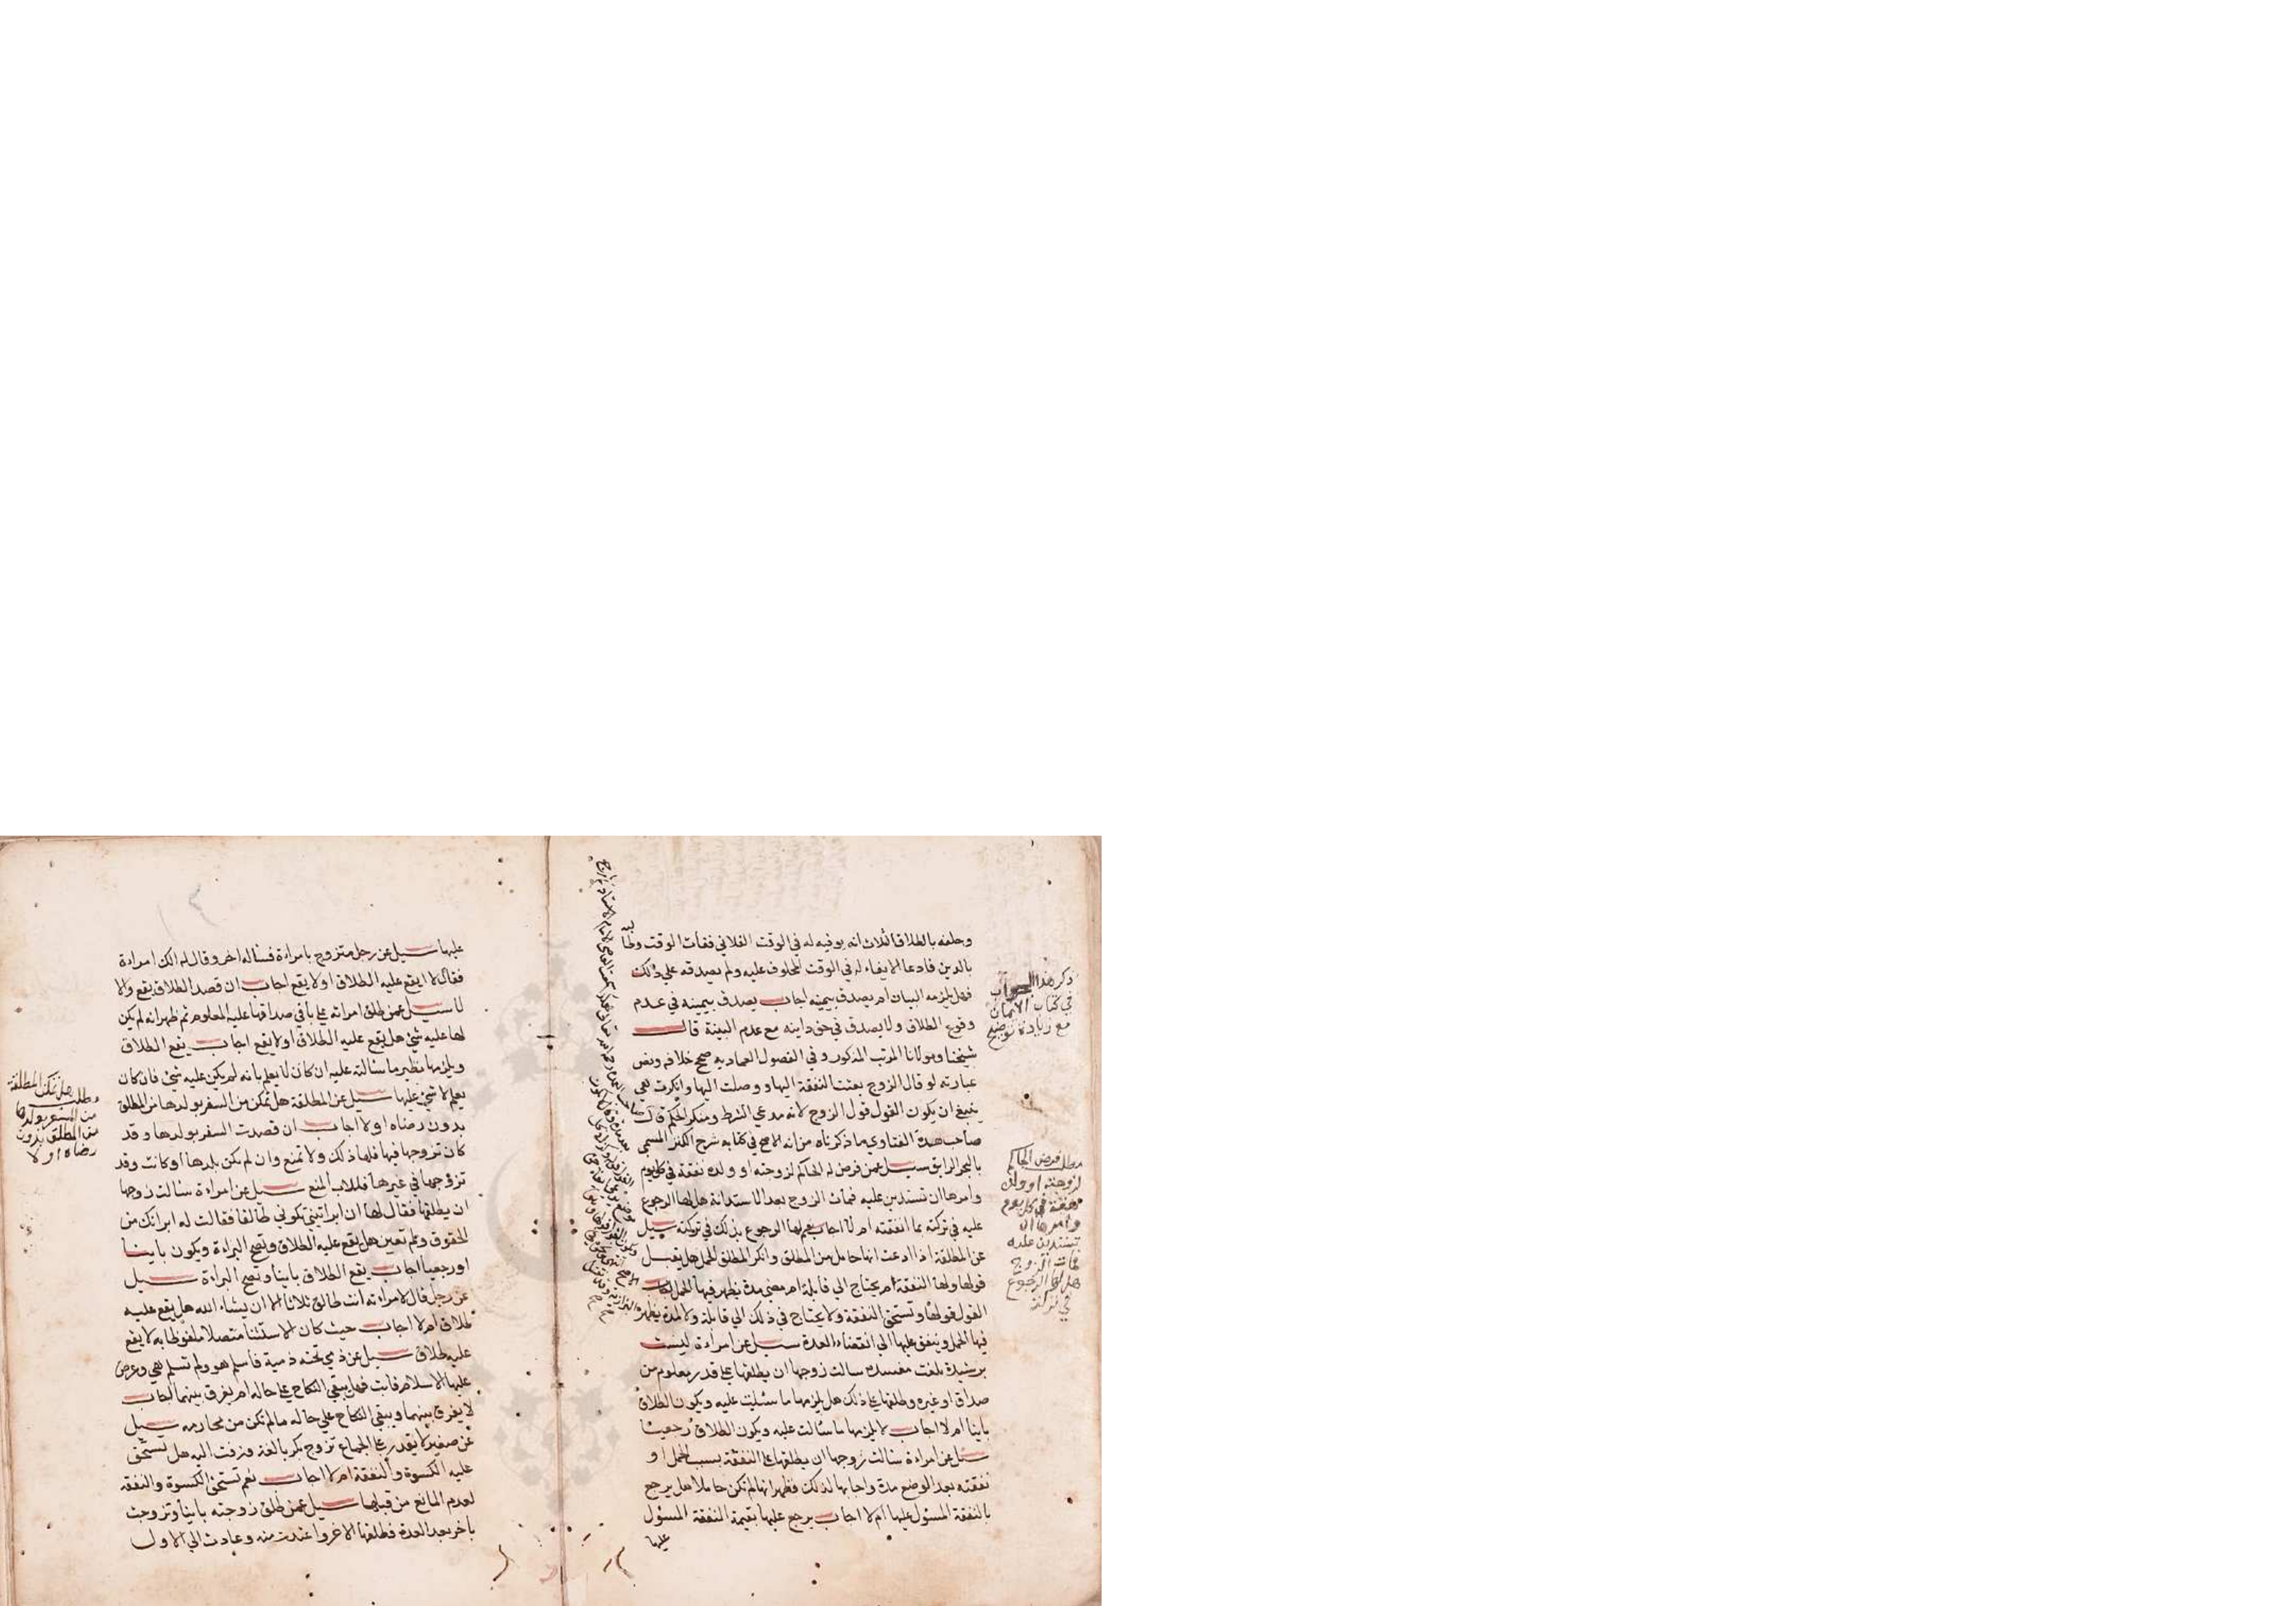 وحلفه بالطلاق الثلاث انه يوفيه له في الوقت الفلاني ففات الوقت وطالبه
بالدين فادعا الايفاء له في الوقت المحلوف عليه ولم يصدقه علي ذلك
فهل يلزمه البيان ام يصدق بيمينه اجاب يصدق بيمينه في عدم
وقوع الطلاق ولا يصدق في حق داينه مع عدم البينة قال
شيخنا ومولانا المرتب المذكور وفي الفصول العماديه صحح خلافه ونص
عبارته لو قال الزوج بعثت النفقة اليها ووصلت اليها وانكرت هي
ينبغي ان يكون القول قول الزوج لانه مدعي الشرط ومنكر الحكم قلت
صاحب هذة الفتاوي ما ذكرناه من انه الاصح في كتابه شرح الكنز المسمي
بالبحر الرايق سيل عمن فرض له الحاكم لزوجته او ولده نفقة في كل يوم
وامرها ان تستدين عليه فمات الزوج بعد الاستدانة هل لها الرجوع
عليه في تركته بما انفقته ام لا اجاب نعم لها الرجوع بذلك في تركته سيل
عن المطلقة اذا ادعت انها حامل من المطلق وانكر المطلق الحمل هل يقبل
قولها ولها النفقة ام يحتاج الي قابلة ام مضي مدة يظهر فيها الحمل اجاب
القول قولها وتستحق النفقة ولا يحتاج في ذلك الي قابلة ولا لمدة يظهر
فيها الحمل وينفق عليها الي انقضاء العدة سيل عن امراءة ليست
برشيدة بلغت مفسده سالت زوجها ان يطلقها علي قدر معلوم من
صداق او غيره وطلقها علي ذلك هل يلزمها ما سئلت عليه ويكون الطلاق
باينا ام لا اجاب لا يلزمها ما سالت عليه ويكون الطلاق رجعيا
سيل عن امراءة سالت زوجها ان يطلقها علي النفقة بسبب الحمل او
نفقته بعد الوضع مدة واجابها لذلك فظهر انها لم تكن حاملا هل يرجع
بالنفقة المسئول عليها ام لا اجاب يرجع عليها بقيمة النفقة المسئول
عليها
ذكر هذا الجواب
في كتاب الايمان
مع زيادة توضيح
مطلب فرض الحاكم
لزوجته او ولده
نفقة في كل يوم
وامرها ان
تستدين عليه
فمات الزوج
هل لها الرجوع
في تركته
عليها سيل عن رجل متزوج بامراءة فساله اخر وقال له الك امراءة
فقال لا ايقع عليه الطلاق او لا يقع اجاب ان قصد الطلاق يقع والا
لا سيل عمن طلق امراته علي باقي صداقها عليه المعلوم ثم ظهر انه لم يكن
لها عليه شئ هل يقع عليه الطلاق او لا يقع اجاب يقع الطلاق
ويلزمها نظير ما سالته عليه ان كان لا يعلم بانه لم يكن عليه شئ فان كان
يعلم لا شئ عليها سيل عن المطلقة هل تمكن من السفر بولدها من المطلق
بدون رضاه او لا اجاب ان قصدت السفر بولدها وقد
كان تزوجها فيها فلها ذلك ولا تمنع وان لم تكن بلدها او كانت وقد
تزوجها في غيرها فللاب المنع سيل عن امراءة سالت زوجها
ان يطلقها فقال لها ان ابراتيني تكوني طالقا فقالت له ابراتك من
الحقوق ولم تعين هل يقع عليه الطلاق وتصح البراءة ويكون باينا
او رجعيا اجاب يقع الطلاق باينا وتصح البراءة سيل
عن رجل قال لامراءته انت طالق ثلاثا الا ان يشاء الله هل يقع عليه
طلاق ام لا اجاب حيث كان الاستثنا متصلا ملفوظا به لا يقع
عليه طلاق سيل عن ذمي تحته ذمية فاسلم هو ولم تسلم هي وعرض
عليها الاسلام فابت فهل يبقي النكاح علي حاله ام يفرق بينهما اجاب
لا يفرق بينهما ويبقي النكاح علي حاله ما لم تكن من محارمه سيل
عن صغير لا يقدر علي الجماع تزوج بكر بالغة وزفت اليه هل تستحق
عليه الكسوة والنفقة ام لا اجاب نعم تستحق الكسوة والنفقة
لعدم المانع من قبلها سيل عمن طلق زوجته باينا وتزوجت
باخر بعد العدة فطلقها الاخر واعتدت منه وعادت الي الاول
مطلب هل تمكن المطلقة
من السفر بولدها
من المطلق بدون
رضاه او لا